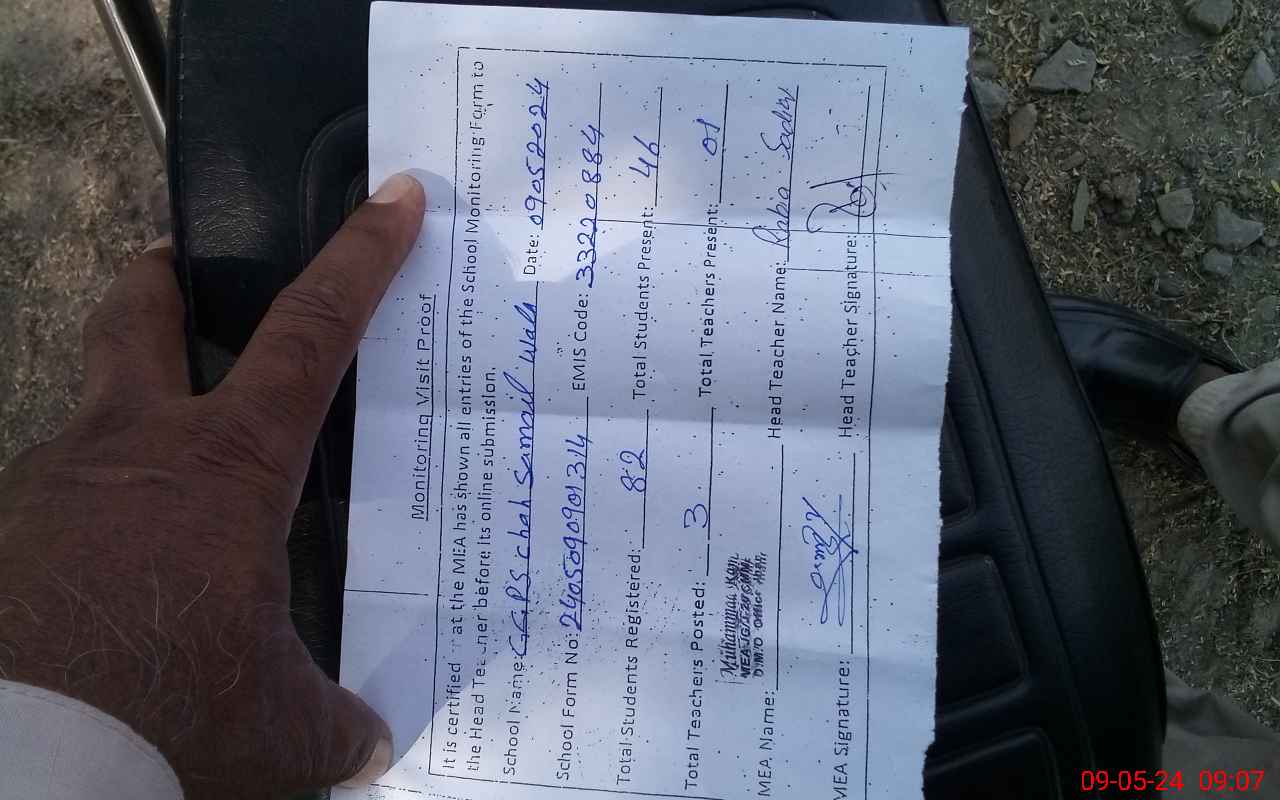 Monitoring Visit Proof
It is certified at the MEA has shown all entries of the School Monitoring Form to
the Head Teacher before its online submission.
School Name: GGPS chah Samail wala Date: 09052024
School Form No: 240509090901314 EMIS Code: 33220884
Total Students Registered: 82 Total Students Present: 46
Total Teachers Posted: 3 Total Teachers Present: 01
Muhammad
D.M.O Office
MEA Name: Head Teacher Name: Rabia Sadiq
MEA Signature: Head Teacher Signature:
09-05-24 09:07